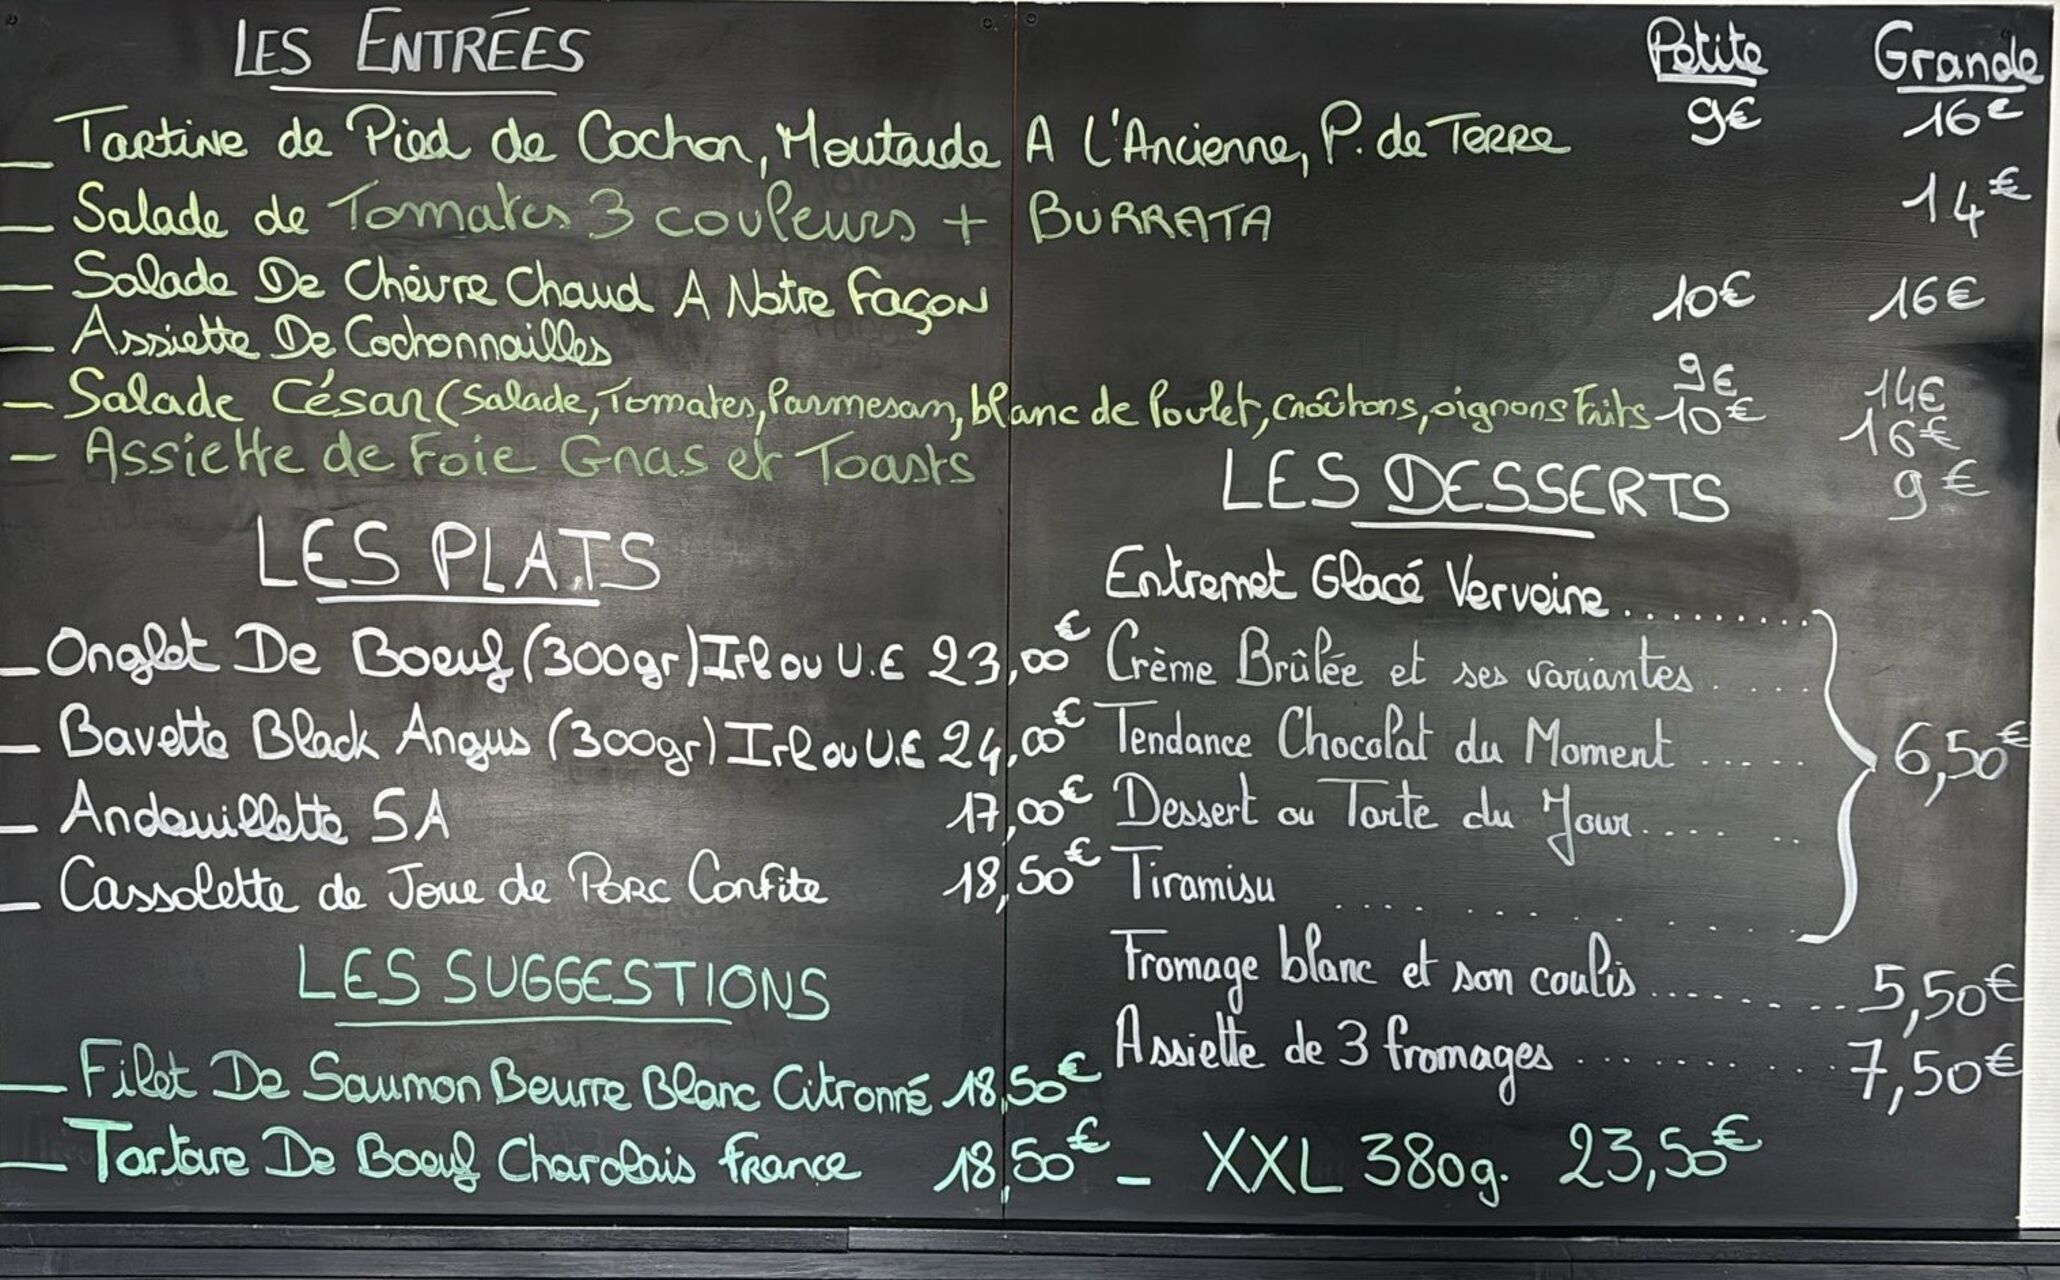 LES ENTRÉES Petite Grande
_ Tartine de Pied de Cochon, Moutarde A L'Ancienne, P. de TERRE 9€ 16€
_ Salade de Tomates 3 couleurs + BURRATA 14€
_ Salade De Chèvre Chaud A Notre Façon 10€ 16€
_ Assiette De Cochonnailles 9€ 14€
_ Salade César (Salade, Tomates, Parmesan, blanc de Poulet, croûtons, oignons Frits 10€ 16€
_ Assiette de Foie Gras et Toasts 9€
LES PLATS
_ Onglet De Boeuf (300gr) Irl ou U.E 23,00€
_ Bavette Black Angus (300gr) Irl ou U.E 24,00€
_ Andouillette 5A 17,00€
_ Cassolette de Joue de Porc Confite 18,50€
LES SUGGESTIONS
_ Filet De Saumon Beurre Blanc Citronné 18,50€
_ Tartare De Boeuf Charolais France 18,50€ _ XXL 380g. 23,50€
LES DESSERTS
Entremet Glacé Verveine.........
Crème Brûlée et ses variantes.....
Tendance Chocolat du Moment ..... 6,50€
Dessert ou Tarte du Jour.... ..
Tiramisu ..........
Fromage blanc et son coulis......... 5,50€
Assiette de 3 fromages .......... 7,50€